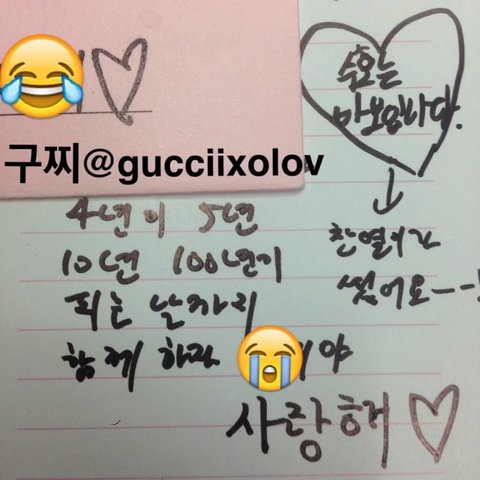 수호는
바보입니다.
구찌@gucciixolov
4년이 5년
10년 100년이
되는 날까지
함께 하자 야
사랑해 ♡
찬열이가
썼어요--!